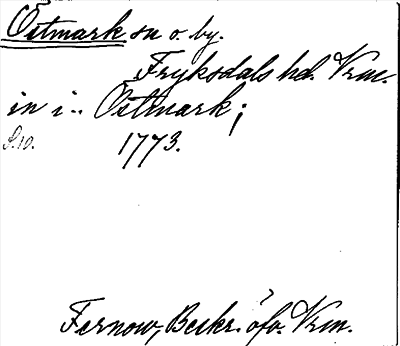 Östmark sn o. by.
Fryksdals hd. Vrm.
in i .. Östmark;
S. 10. 1773.
Fernow, Beskr. öfv. Vrm.